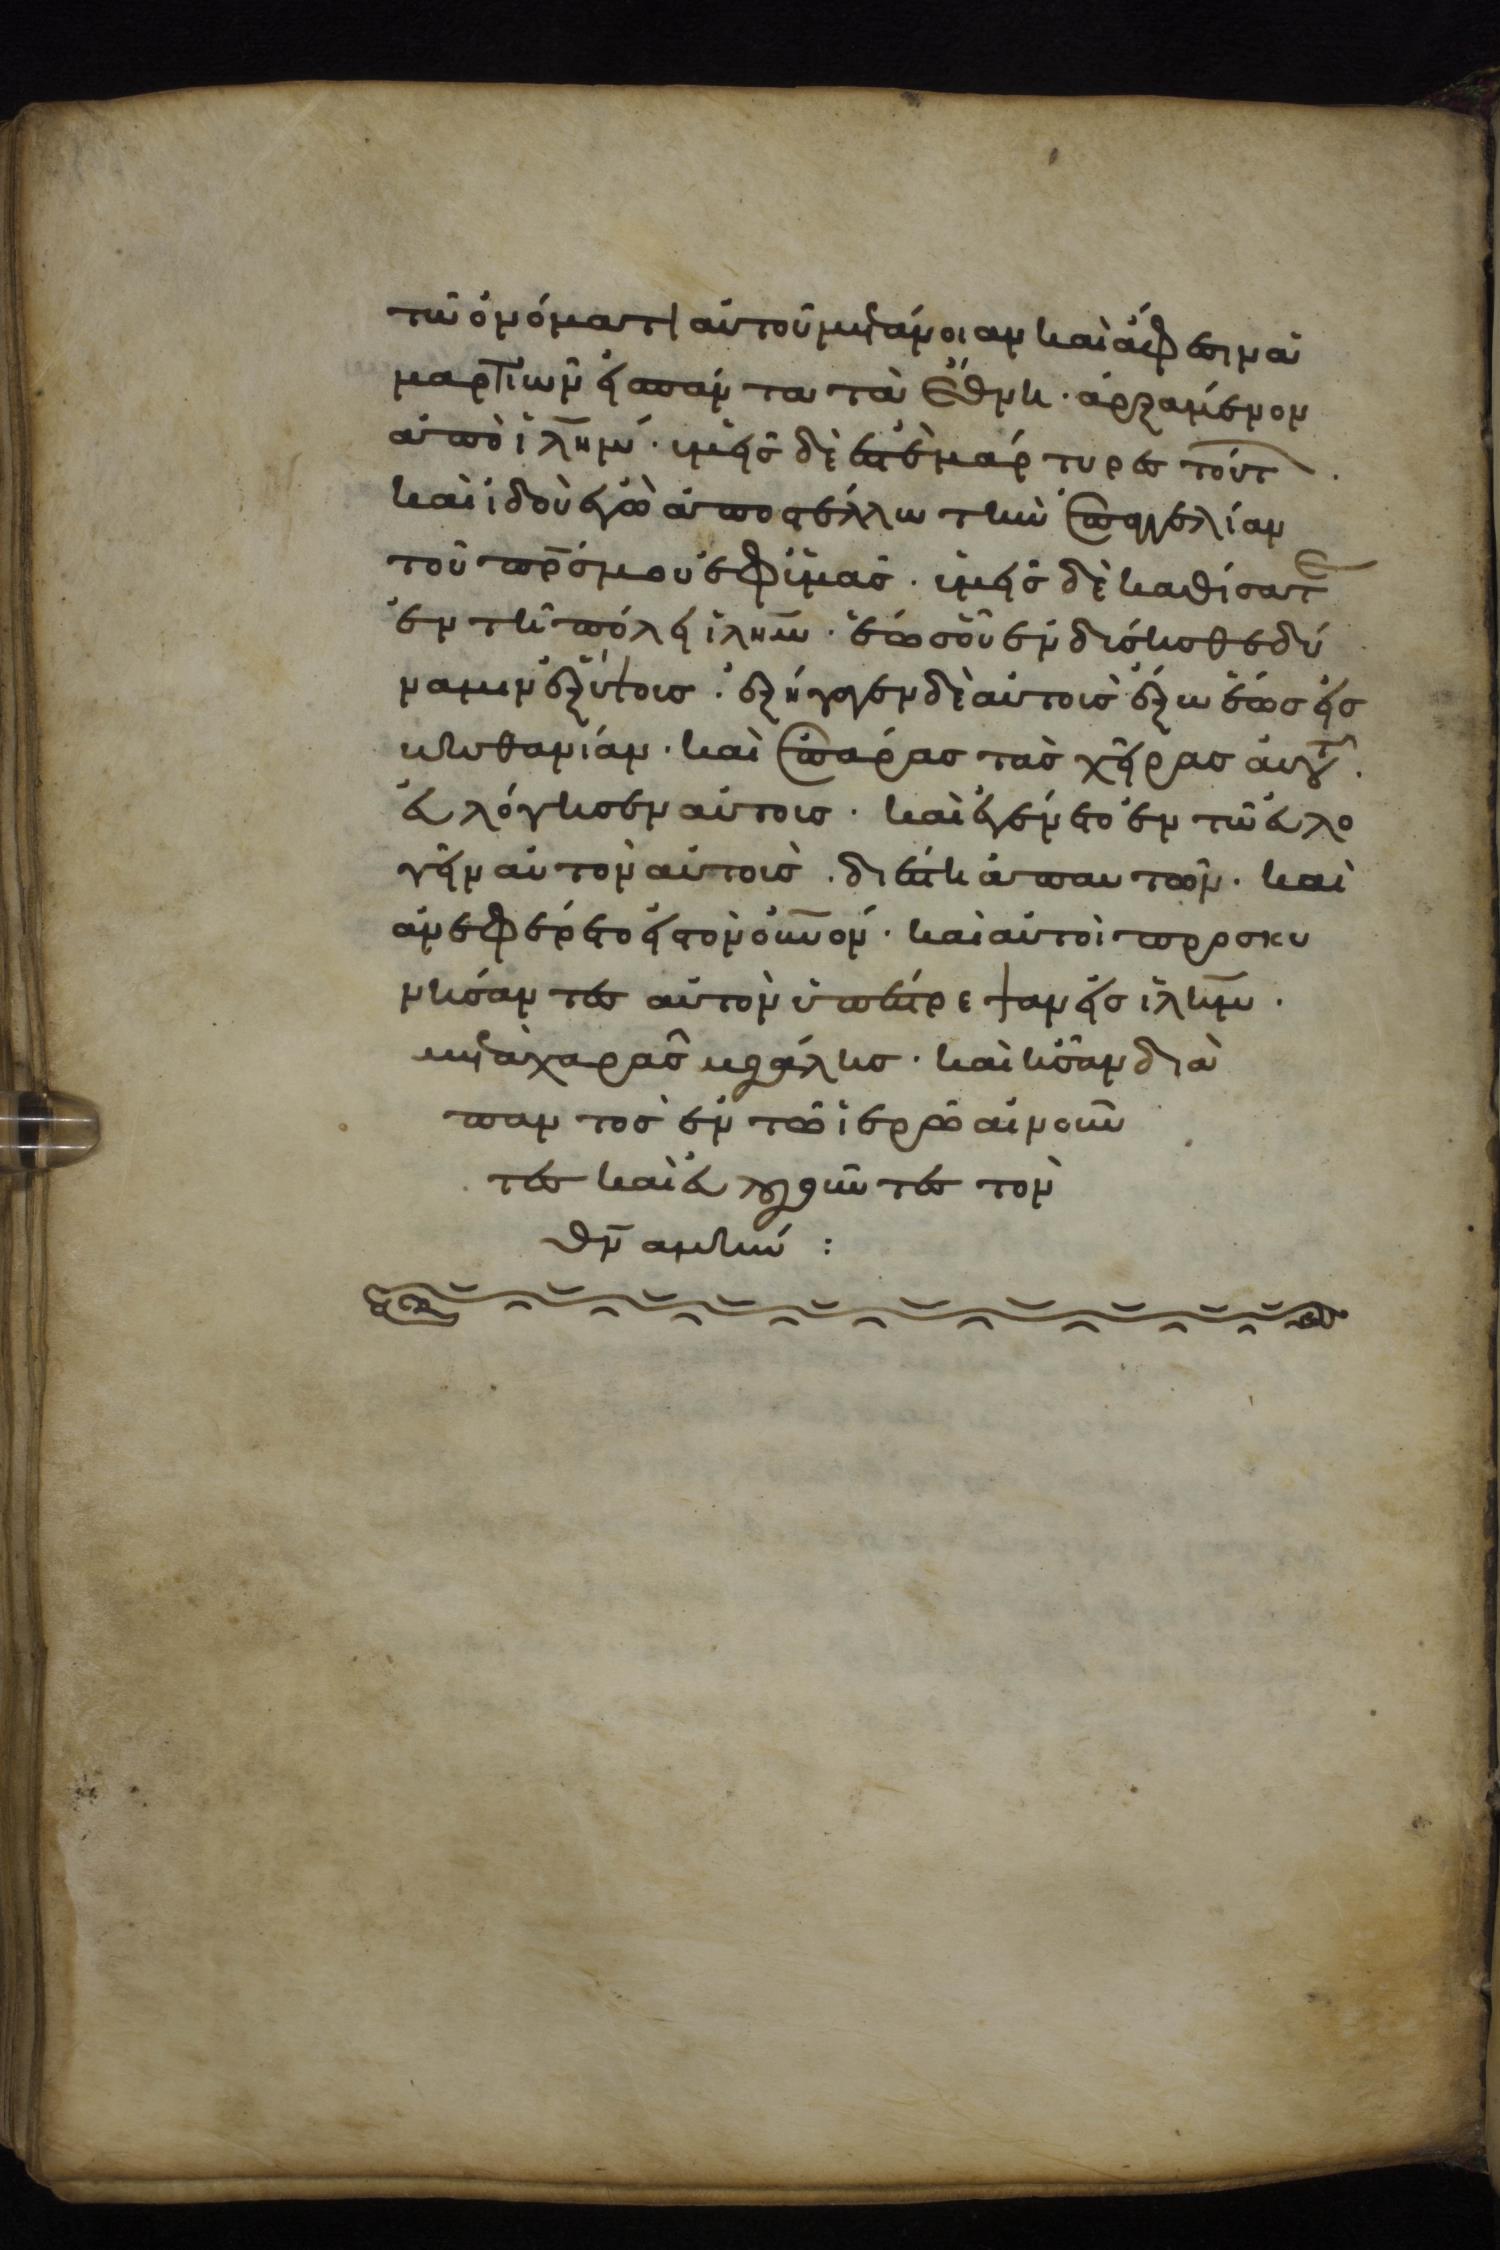 τῶ ὀνόματι αὐτοῦ μετάνοιαν καὶ ἄφεσιν ἁ
μαρτιῶν εἰς πάντα τὰ ἔθνη · ἀρξάμενον
ἀπὸ ἰλημ · ὑμεῖς δέ ἐστὲ μάρτυρες τούτ .
καὶ ἰδοὺ ἐγὼ ἀποστέλλω τὴν ἐπαγγελίαν
τοῦ πρσ μου ἐφ ὑμᾶς · ὑμεῖς δὲ καθίσατε
ἐν τῆ πόλει ἰλημ · ἕως οὗ ἐνδύσησθε δύ
ναμιν ἐξ ὕψους · ἐξήγαγεν δὲ αὐτοὺς ἔξω ἕως εἰς
βηθανίαν · καὶ ἐπάρας τὰς χεῖρας αὐτοῦ ·
εὐλόγησεν αὐτοὺς · καὶ ἐγένετο ἐν τῶ εὐλο
γεῖν αὐτὸν αὐτοὺς · διέστη ἀπ αυτῶν · καὶ
ἀνεφέρετο εἰς τὸν οὐνον · καὶ αὐτοὶ προσκυ
νήσαντες αὐτὸν ὑπέστρεψαν εἰς ἰλημ ·
μετὰ χαρᾶς μεγάλης · καὶ ἦσαν διὰ
παντὸς ἐν τῶ ἱερῶ αἰνοῦν
τες καὶ εὐλογοῦντες τὸν
θν ἀμήν :